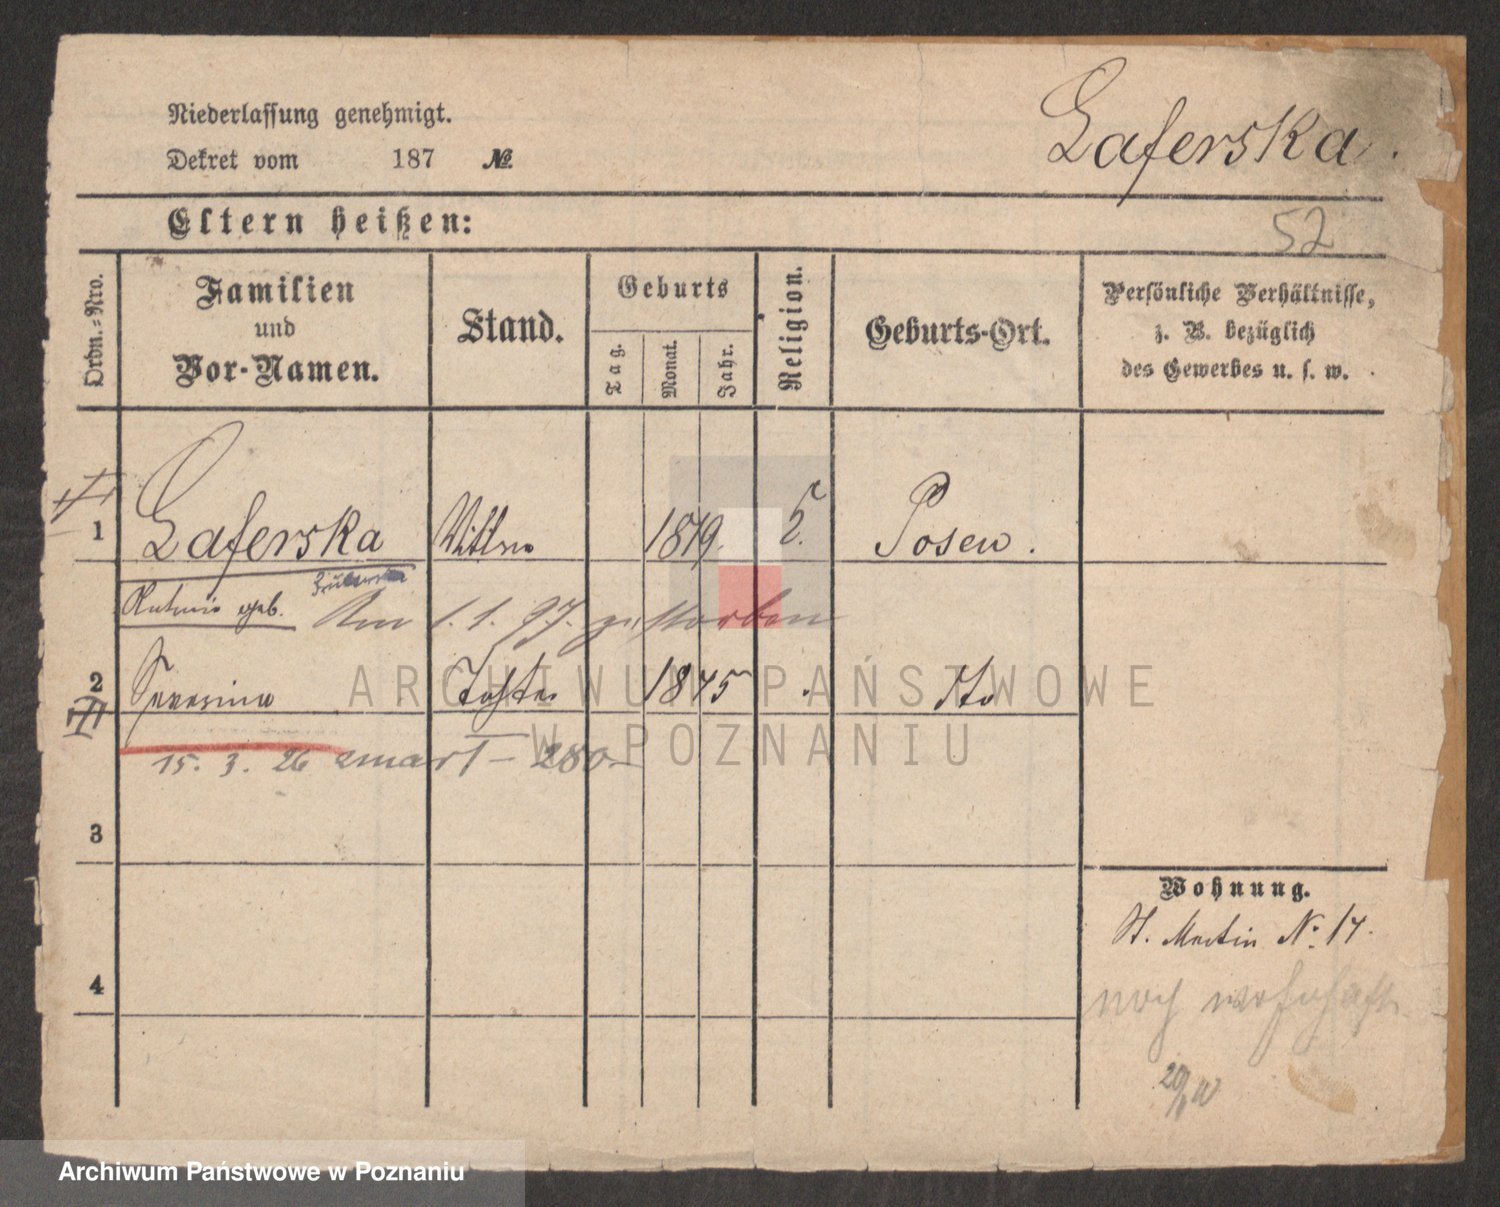 Niederlassung genehmigt.
Dekret vom 187 №
Zaferska.
Eltern heißen:
52
Ordn.-Nro.
Familien
und
Vor-Namen.
Stand.
Geburts
Tag.
Monat.
Jahr.
Religion.
Geburts-Ort.
Persönliche Verhältnisse,
z. B. bezüglich
des Gewerbes u. s. w.
1 Zaferska Wittwe 1819. Posen.
geb.
Am 1.1.97. gestorben
2 Severina Tochter 1845 dto
ARCHIWUM PAŃSTWOWE
W POZNANIU
15. 3. 26 zmarł - 280 -
3
Wohnung.
St. Martin N. 17.
noch wohnhaft
4
Archiwum Państwowe w Poznaniu